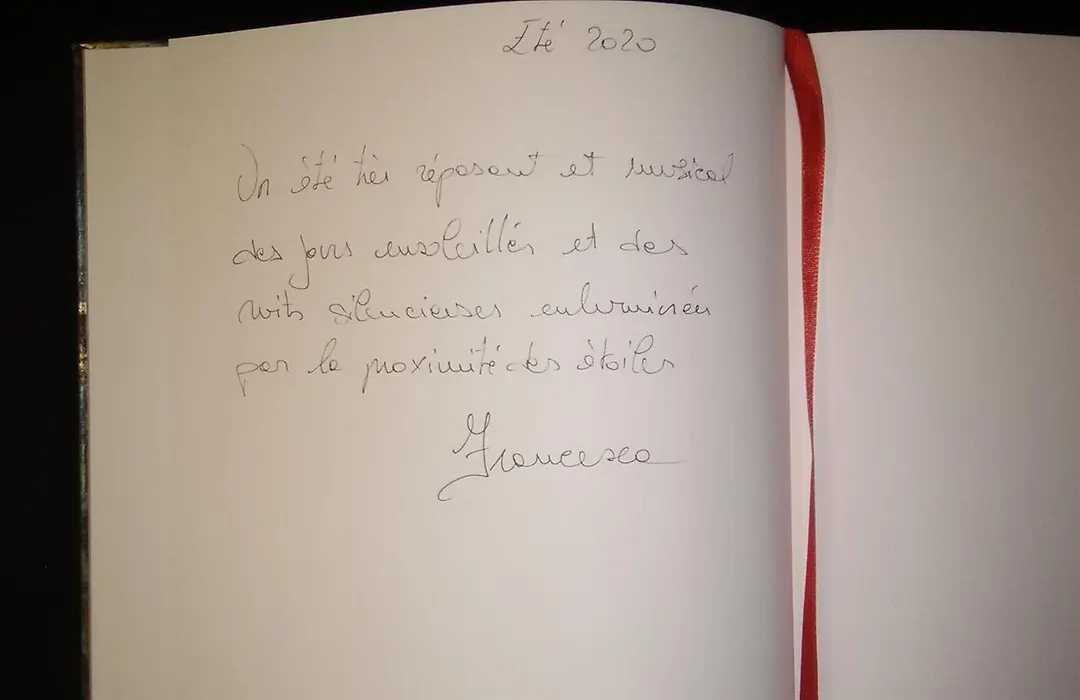 Eté 2020
Un été très réposant et musical
des jours ensoleillés et des
nuits silencieuses culminées
par la proximité des étoiles
Francesca